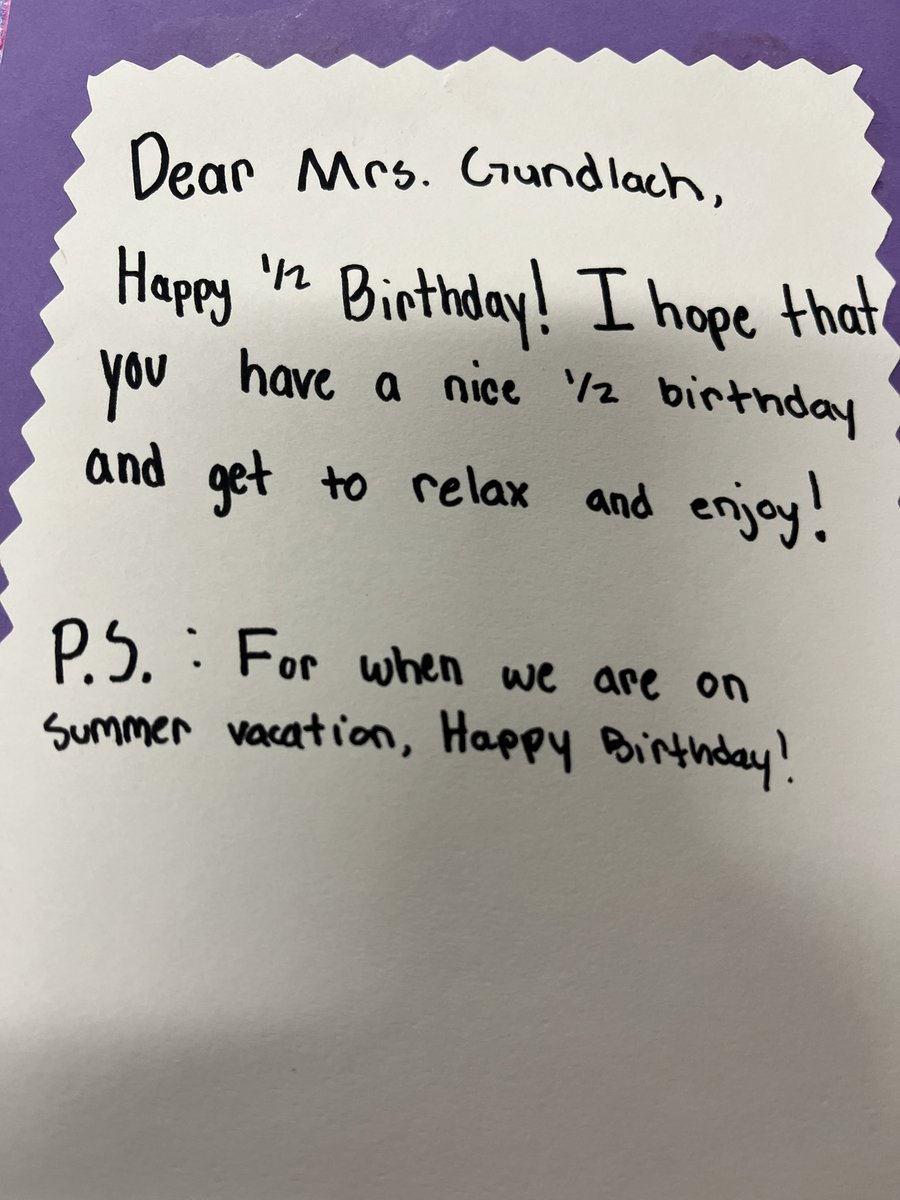 Dear Mrs. Gundlach,
Happy 1/2 Birthday! I hope that
you have a nice 1/2 birthday
and get to relax and enjoy!
P.S. : For when we are on
summer vacation, Happy Birthday!